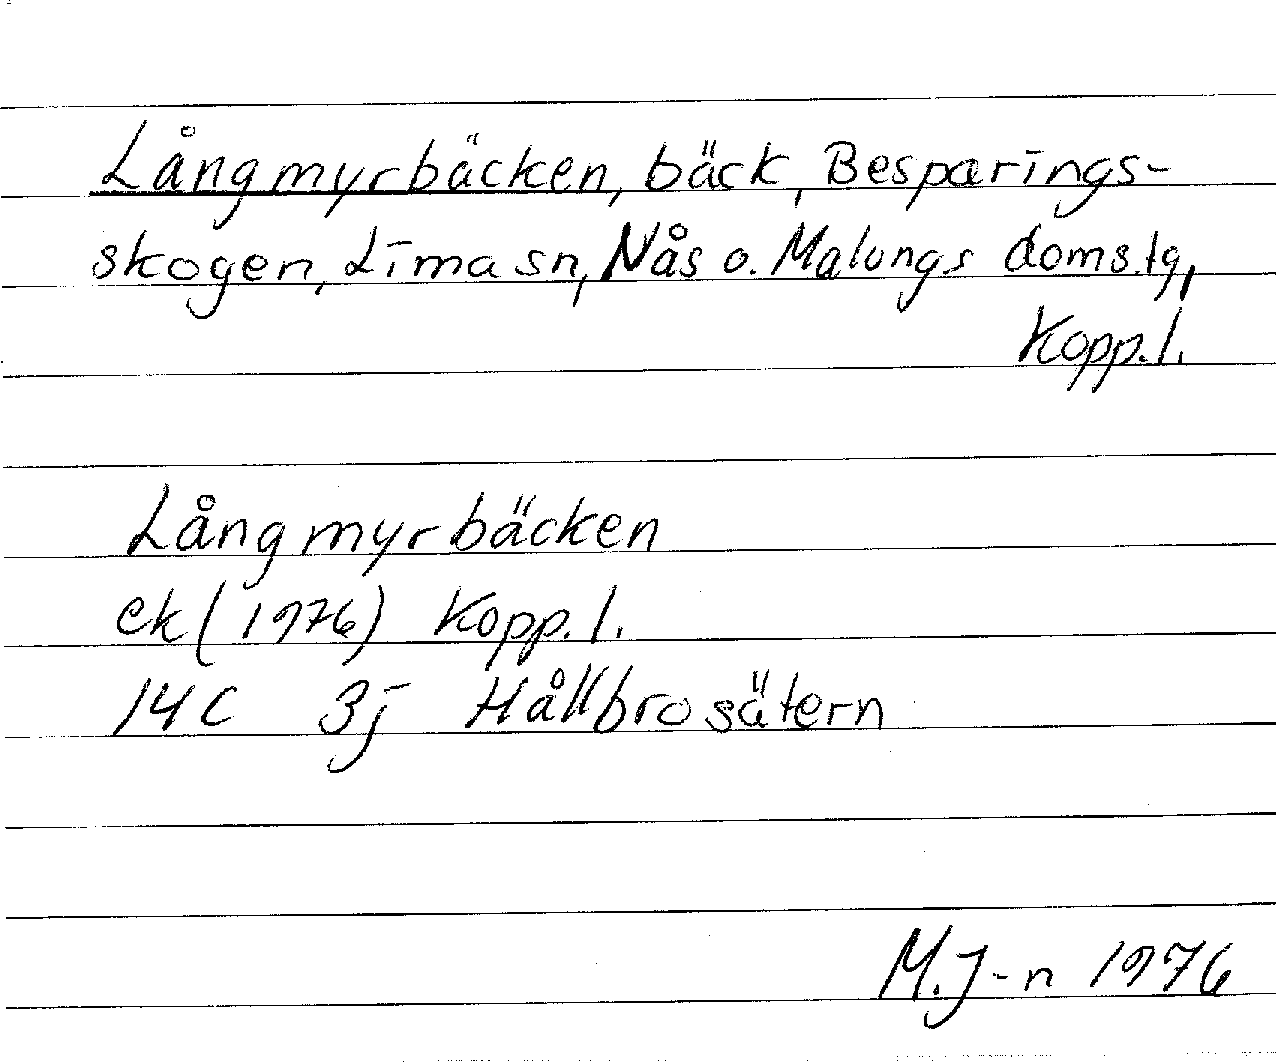 Långmyrbäcken, bäck, Besparings-
skogen, Lima sn, Nås o. Malungs doms.tg,
Kopp.l.
Långmyrbäcken
ek (1976) Kopp.l.
14C 3j Hållbrosätern
M.J-n 1976